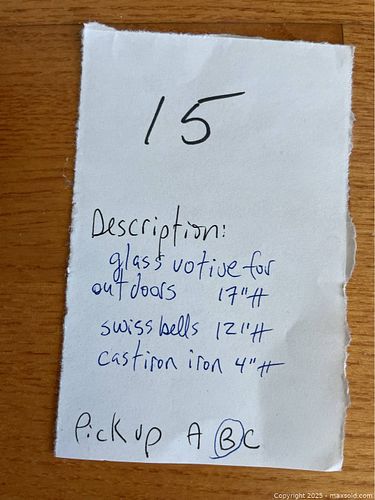 15
Description:
glass votive for
outdoors 17"H
swiss bells 12"H
castiron iron 4"H
Pickup A B C
Copyright 2025 - maxsold.com